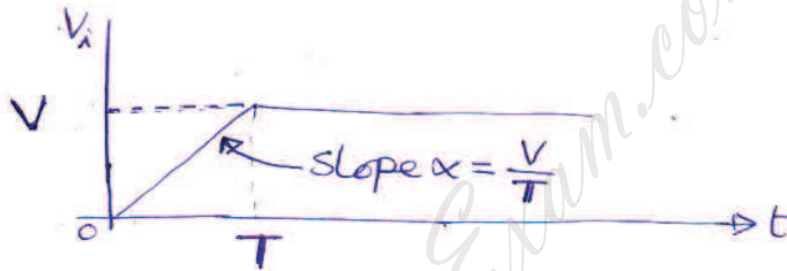 Vi
V
slope α = V/T
0
T
t
Exam.com